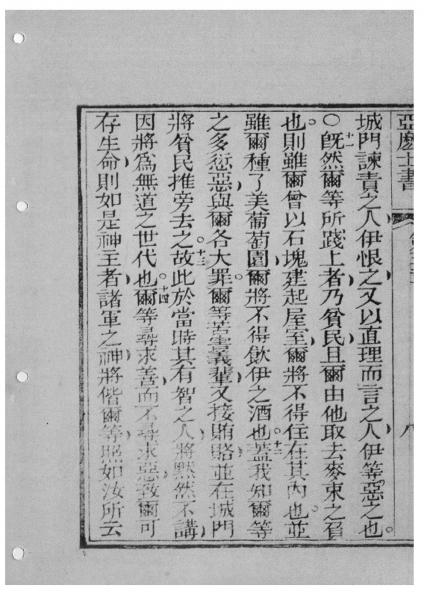 亞麼士書
八
城門諫責之人伊恨之又以直理而言之人伊等惡之也
○十一既然爾等所踐上者乃貧民且爾由他取去麥束之負
也則雖爾曾以石塊建起屋室爾將不得住在其內也並
雖爾種了美葡萄園爾將不得飲伊之酒也十二蓋我知爾等
之多愆惡與爾各大罪爾等苦害義輩又接賄賂並在城門
將貧民推旁去之十三故此於當時其有智之人將默然不講
因將為無道之世代也十四爾等尋求善而不尋求惡致爾可
存生命則如是神王者諸軍之神將偕爾等照如汝所云